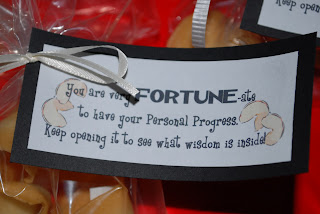 You are very FORTUNE-ate
to have your Personal Progress.
Keep opening it to see what wisdom is inside!
Keep openin